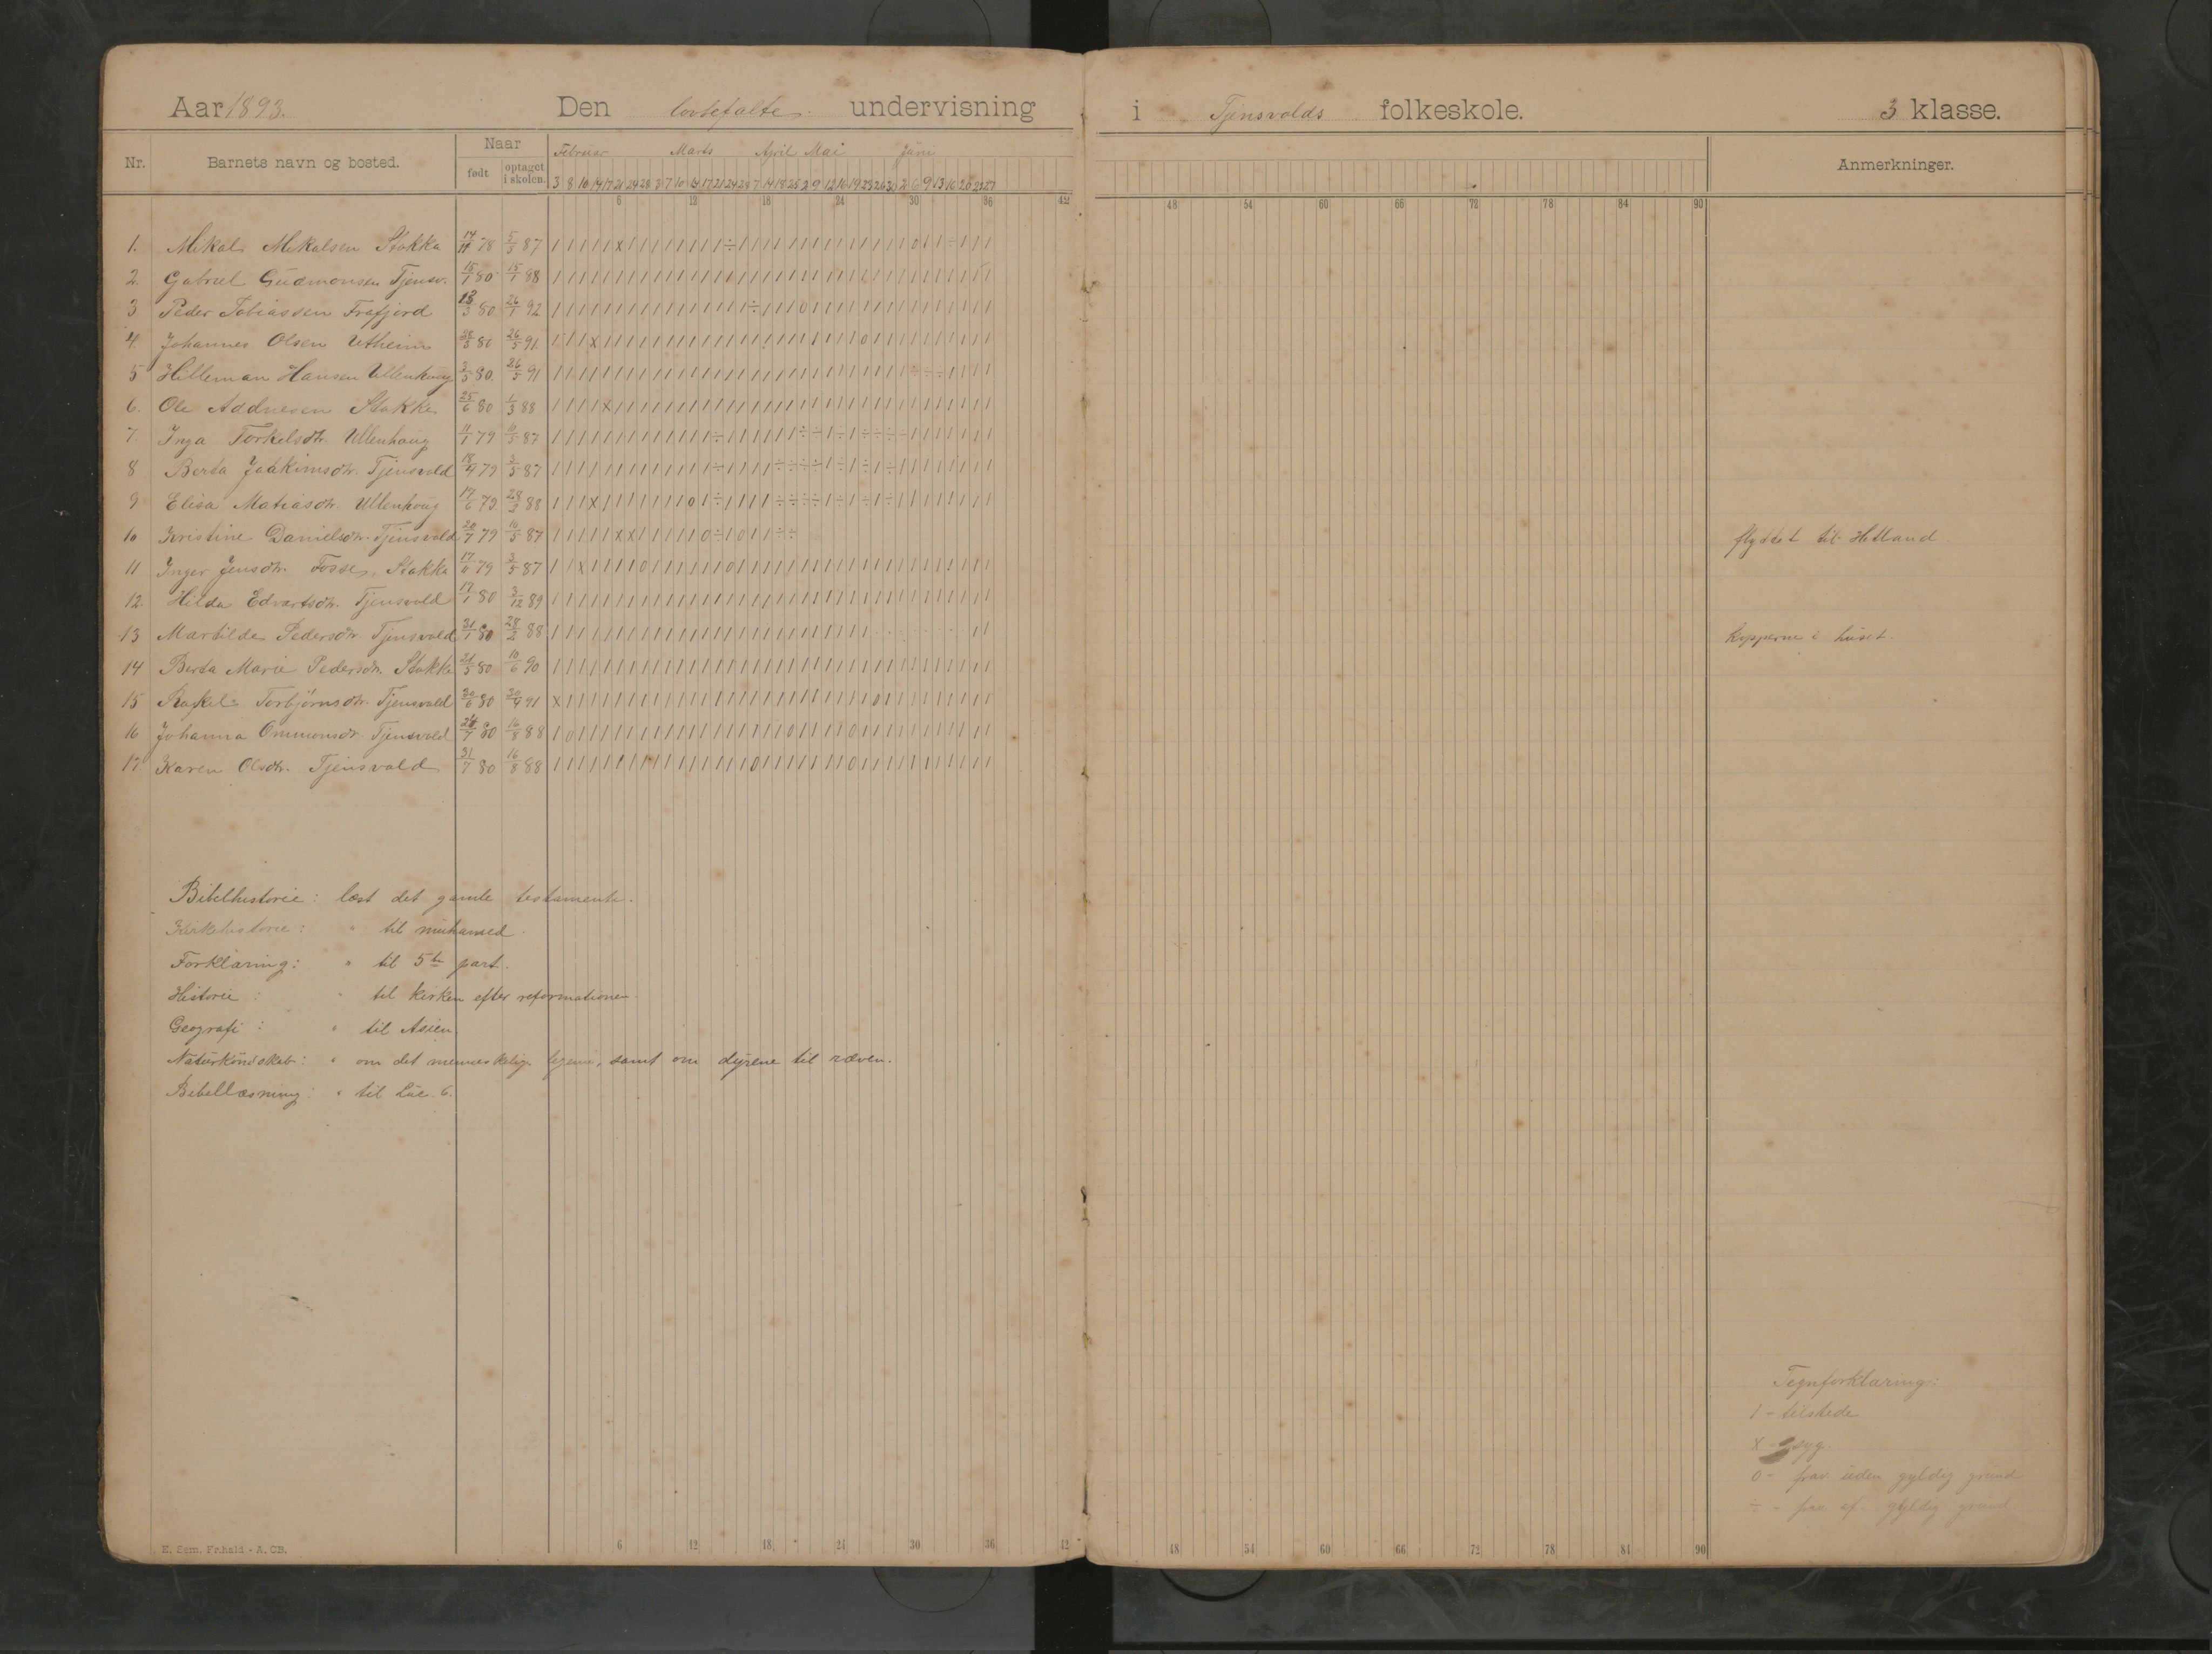 Aar 1893. Den lovbefalte undervisning i Tjensvolds folkeskole. 3 klasse.
Nr. Barnets navn og bosted. Naar født optaget i skolen. Februar Marts April Mai Juni Anmerkninger.
3 8 10 14 17 21 24 28 3 7 10 14 17 21 24 28 7 14 18 25 2 9 12 16 19 23 26 30 2 6 9 13 16 20 23 27
6 12 18 24 30 36 42 48 54 60 66 72 78 84 90
1. Mikal Mikalsen Stokka 14/11 78 5/5 87
2. Gabriel Gudmonsen Tjensv. 15/1 80 15/1 88
3 Peder Tobiassen Frafjord 13/3 80 26/1 92
4. Johannes Olsen Utheim 28/3 80 26/5 91
5 Hilleman Hansen Ullenhaug 3/5 80. 26/5 91
6. Ole Addnesen Stokke 25/6 80 1/3 88
7. Inga Torkelsdtr. Ullenhaug 11/1 79 10/5 87
8 Berta Joakimsdtr. Tjensvold 18/4 79 3/5 87
9 Elisa Matiasdtr. Ullenhoug 17/6 79. 28/2 88
10 Kristine Danielsdtr. Tjensvold 20/7 79 10/5 87 flyttet til Hetland.
11 Inger Jensdtr. Fosse, Stokka 79 3/5 87
12. Hilda Edvartsdtr. Tjensvold 17/1 80 3/12 89
13 Martilde Pedersdtr. Tjensvold 31/1 80 28/2 88 kopperne i huset.
14 Berta Marie Pedersdtr. Stokke 21/5 80 10/6 90
15 Rakel Torbjørnsdtr. Tjensvold 30/6 80 30/4 91
16 Johanna Ommonsdtr. Tjensvold 24/7 80 16/8 88
17 Karen Olsdtr. Tjensvold 31/7 80 16/8 88
Bibelhistorie: læst det gamle testamente.
Kirkehistorie: " til muhamed.
Forklaring: " til 5te part.
Historie: " til kirken efter reformationen.
Geografi: " til Asien.
Naturkundskab: " om det menneskelige legeme, samt om dyrene til ræven.
Bibellæsning: " til Luc. 6.
Tegnforklaring:
1 - tilstede
X - syg.
0 - frav. uden gyldig grund
÷ - frav. af gyldig grund
6 12 18 24 30 36 42 48 54 60 66 72 78 84 90